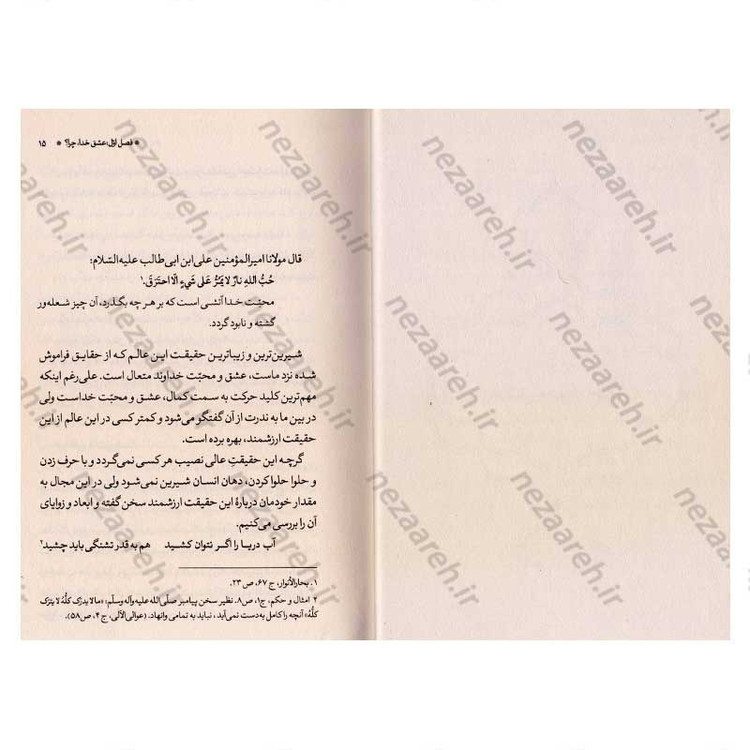 • فصل اول: عشق خدا، چرا؟ • ۱۵
قال مولانا امیرالمؤمنین علی ابن ابی طالب علیه السّلام:
حُبُّ اللهِ نارٌ لا یَمُرُّ عَلی شَيءٍ الّا احتَرَقَ.۱
محبّت خدا آتشی است که بر هر چه بگذرد، آن چیز شعله‌ور
گشته و نابود گردد.
شیرین‌ترین و زیباترین حقیقت این عالم که از حقایق فراموش
شده نزد ماست، عشق و محبّت خداوند متعال است. علی‌رغم اینکه
مهم‌ترین کلید حرکت به سمت کمال، عشق و محبّت خداست ولی
در بین ما به ندرت از آن گفتگو می‌شود و کمتر کسی در این عالم از این
حقیقت ارزشمند، بهره برده است.
گرچه این حقیقتِ عالی نصیب هر کسی نمی‌گردد و با حرف زدن
و حلوا حلوا کردن، دهان انسان شیرین نمی‌شود ولی در این مجال به
مقدار خودمان دربارهٔ این حقیقت ارزشمند سخن گفته و ابعاد و زوایای
آن را بررسی می‌کنیم.
آب دریا را اگر نتوان کشید هم به قدر تشنگی باید چشید۲
۱. بحارالأنوار، ج ۶۷، ص ۲۳.
۲ امثال و حکم، ج۱، ص۸. نظیر سخن پیامبر صلّی الله علیه وآله وسلّم: «مالا یدرَک کلّهُ لا یترَک
کلّهُ» آنچه را کامل به دست نمی‌آید، نباید به تمامی وانهاد. (عوالی الآلی، ج ۴، ص۵۸).
nezaareh.ir
nezaareh.ir
nezaareh.ir
nezaareh.ir
nezaareh.ir
nezaareh.ir
nezaareh.ir